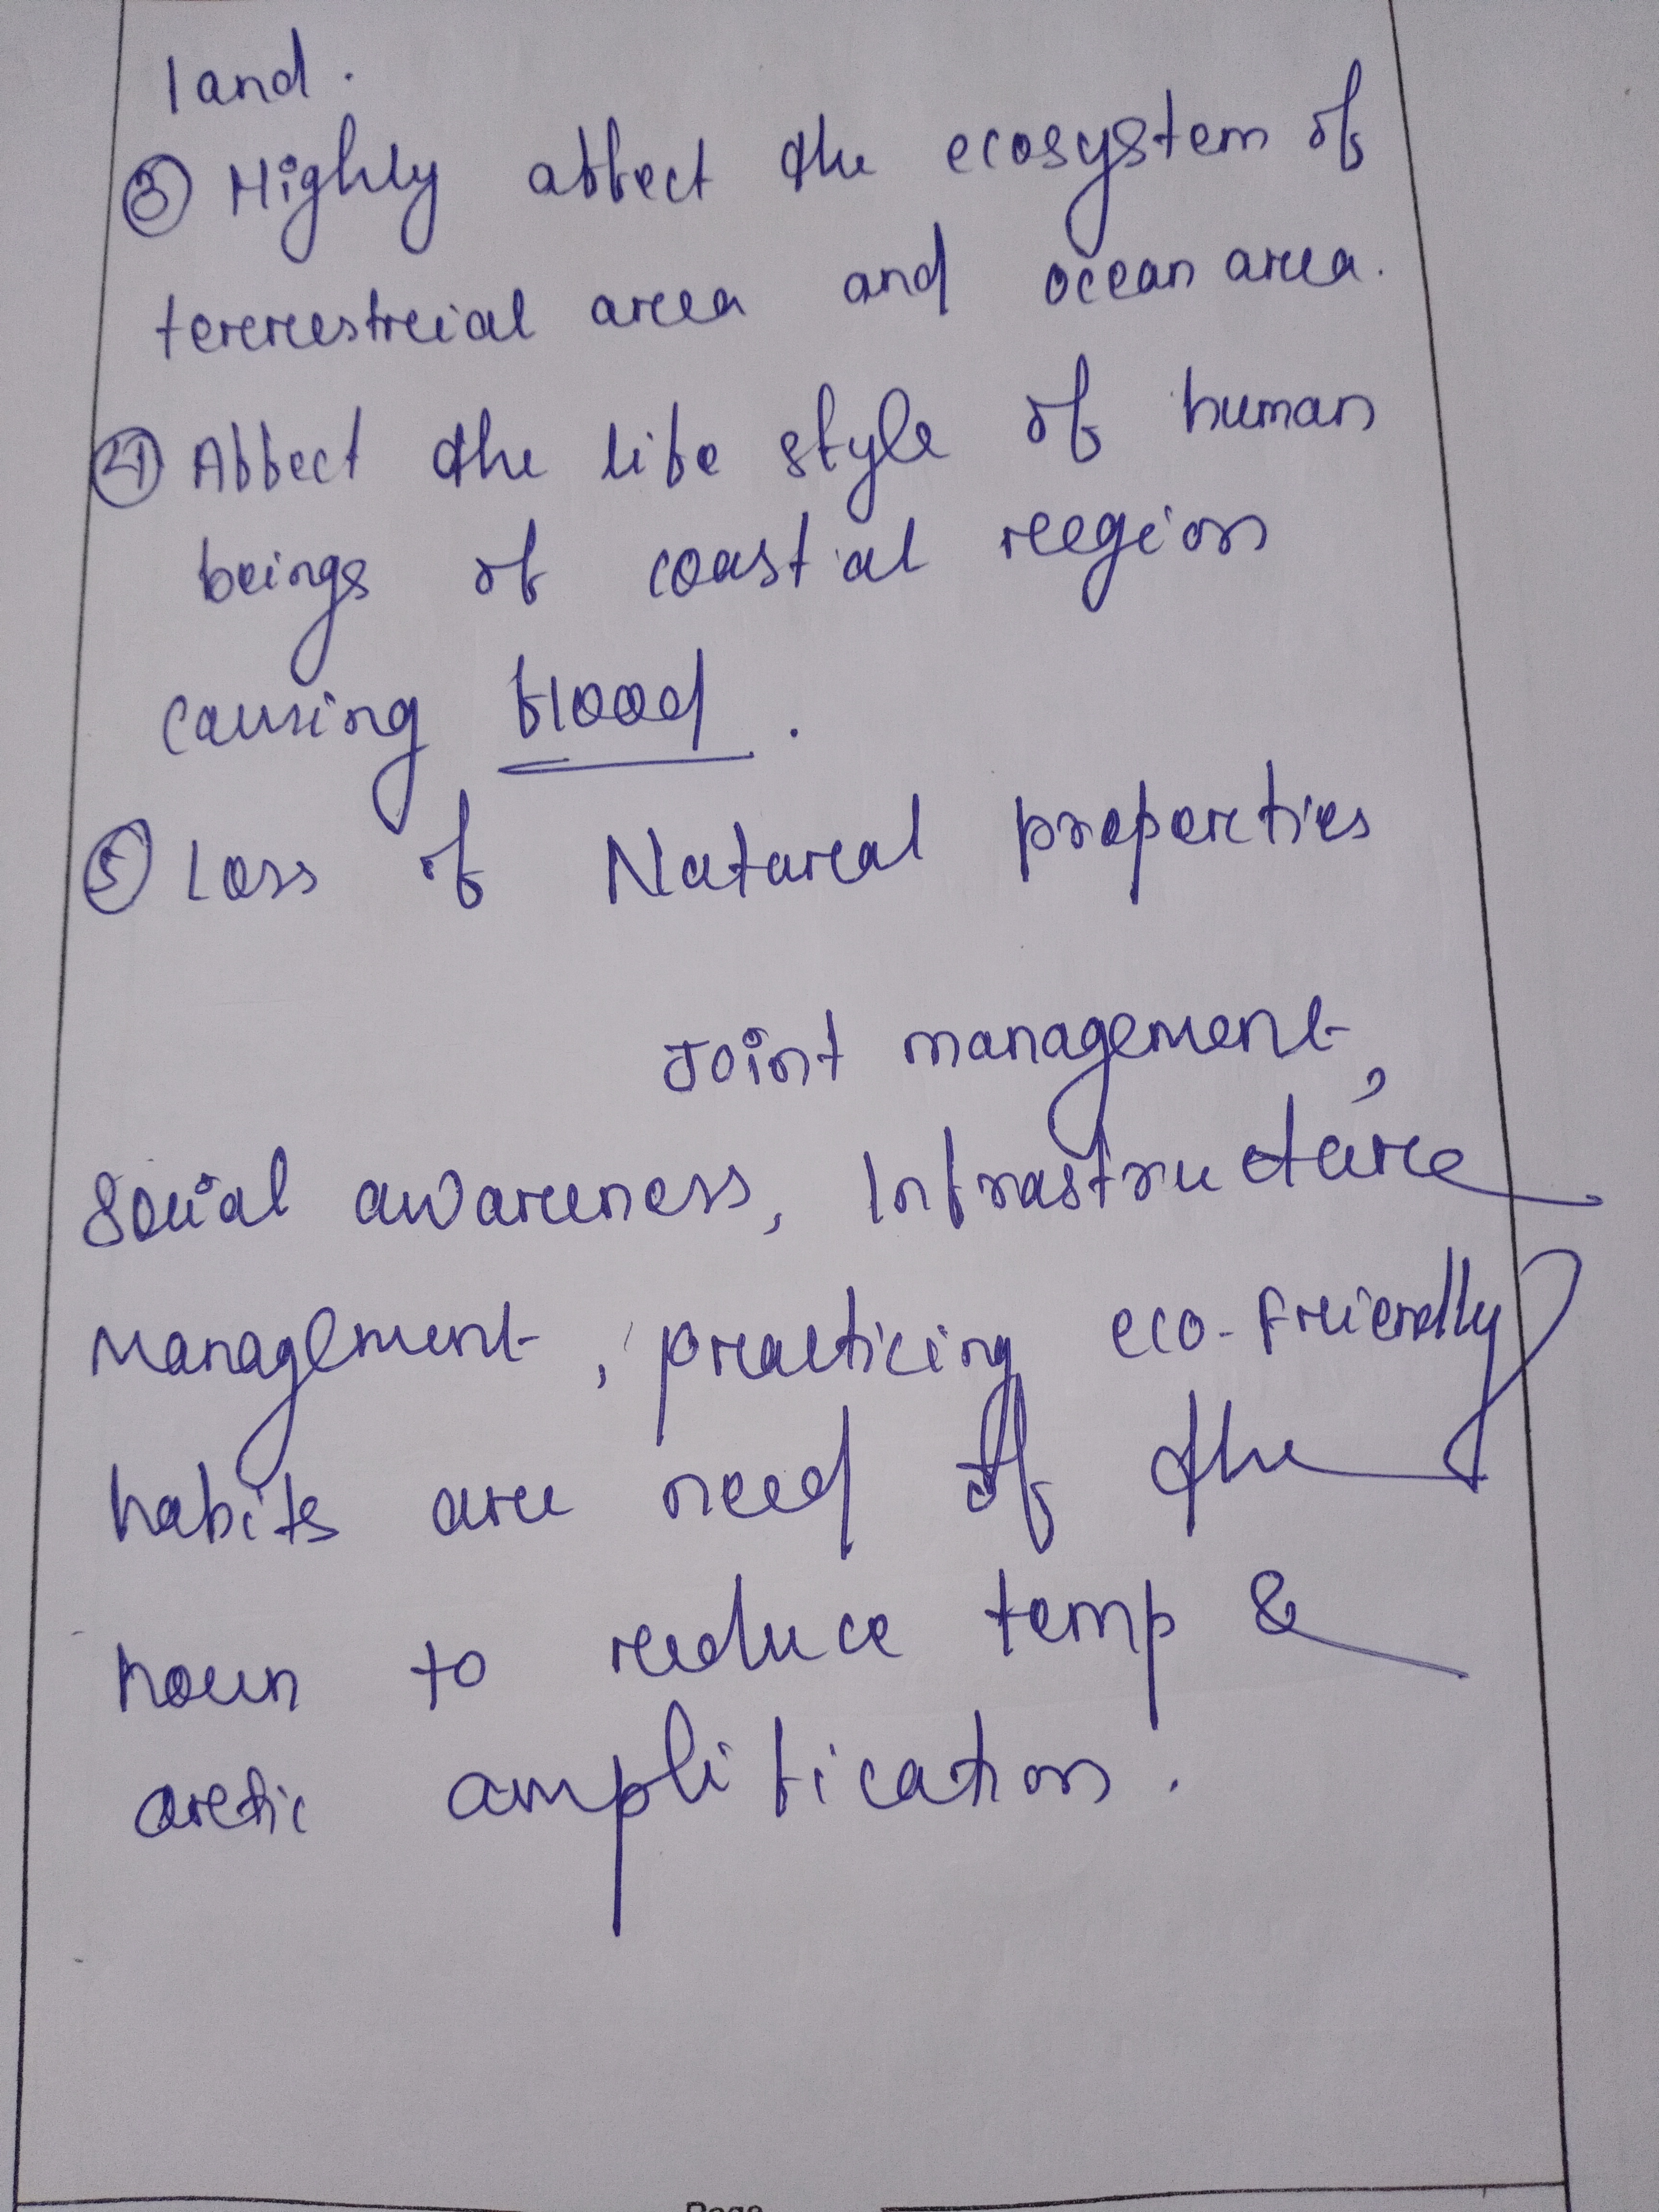 land.
③ Highly affect the ecosystem of
terrestrial area and ocean area.
④ Affect the life style of human
beings of coastal region
causing flood.
⑤ Loss of Natural properties
Joint management,
Social awareness, Infrastructure
Management, practicing eco-friendly
habits are need of the
hour to reduce temp &
arctic amplification.
Page